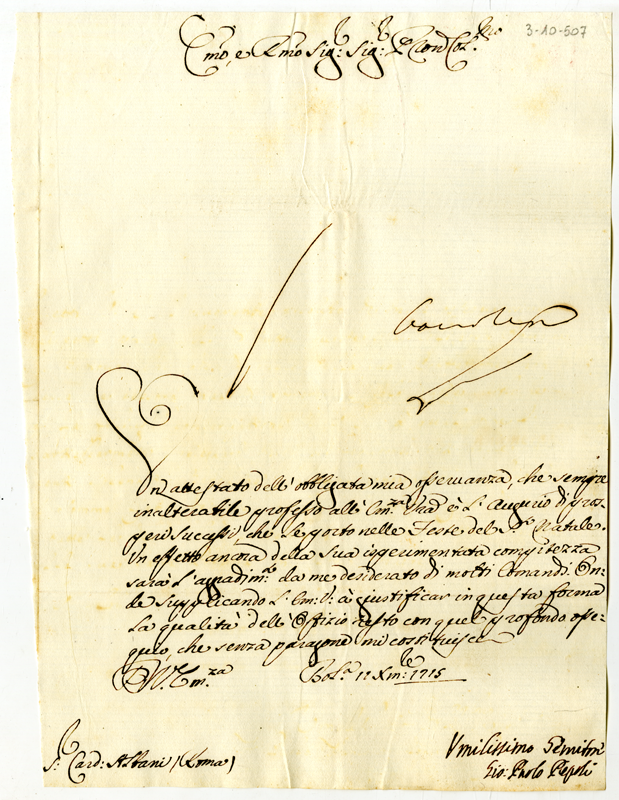 3-10-507
Emo, e Rmo Sig: Sig: P̃rõn Col.mo
Un attestato dell'obbligata mia osservanza, che sempre
inalterabile professo all'Em.za Vrã è l'Augurio di pros-
peri sucessi, che Le porto nelle Feste del S. Natale.
Un effetto ancora della Sua isperimentata compitezza
sarà l'agradim.to da me desiderato di molti Comandi. On-
de supplicando l'Em: V: à giustificar in questa forma
la qualità dell'Offizio resto con quel profondo osse-
quio, che senza paragone mi costituisce
D. V. Em.za
Bol.a 11 Xm:bre 1715
S: Card: Albani (Roma)
Vmilissimo Seruitore
Gio: Paolo Pepoli